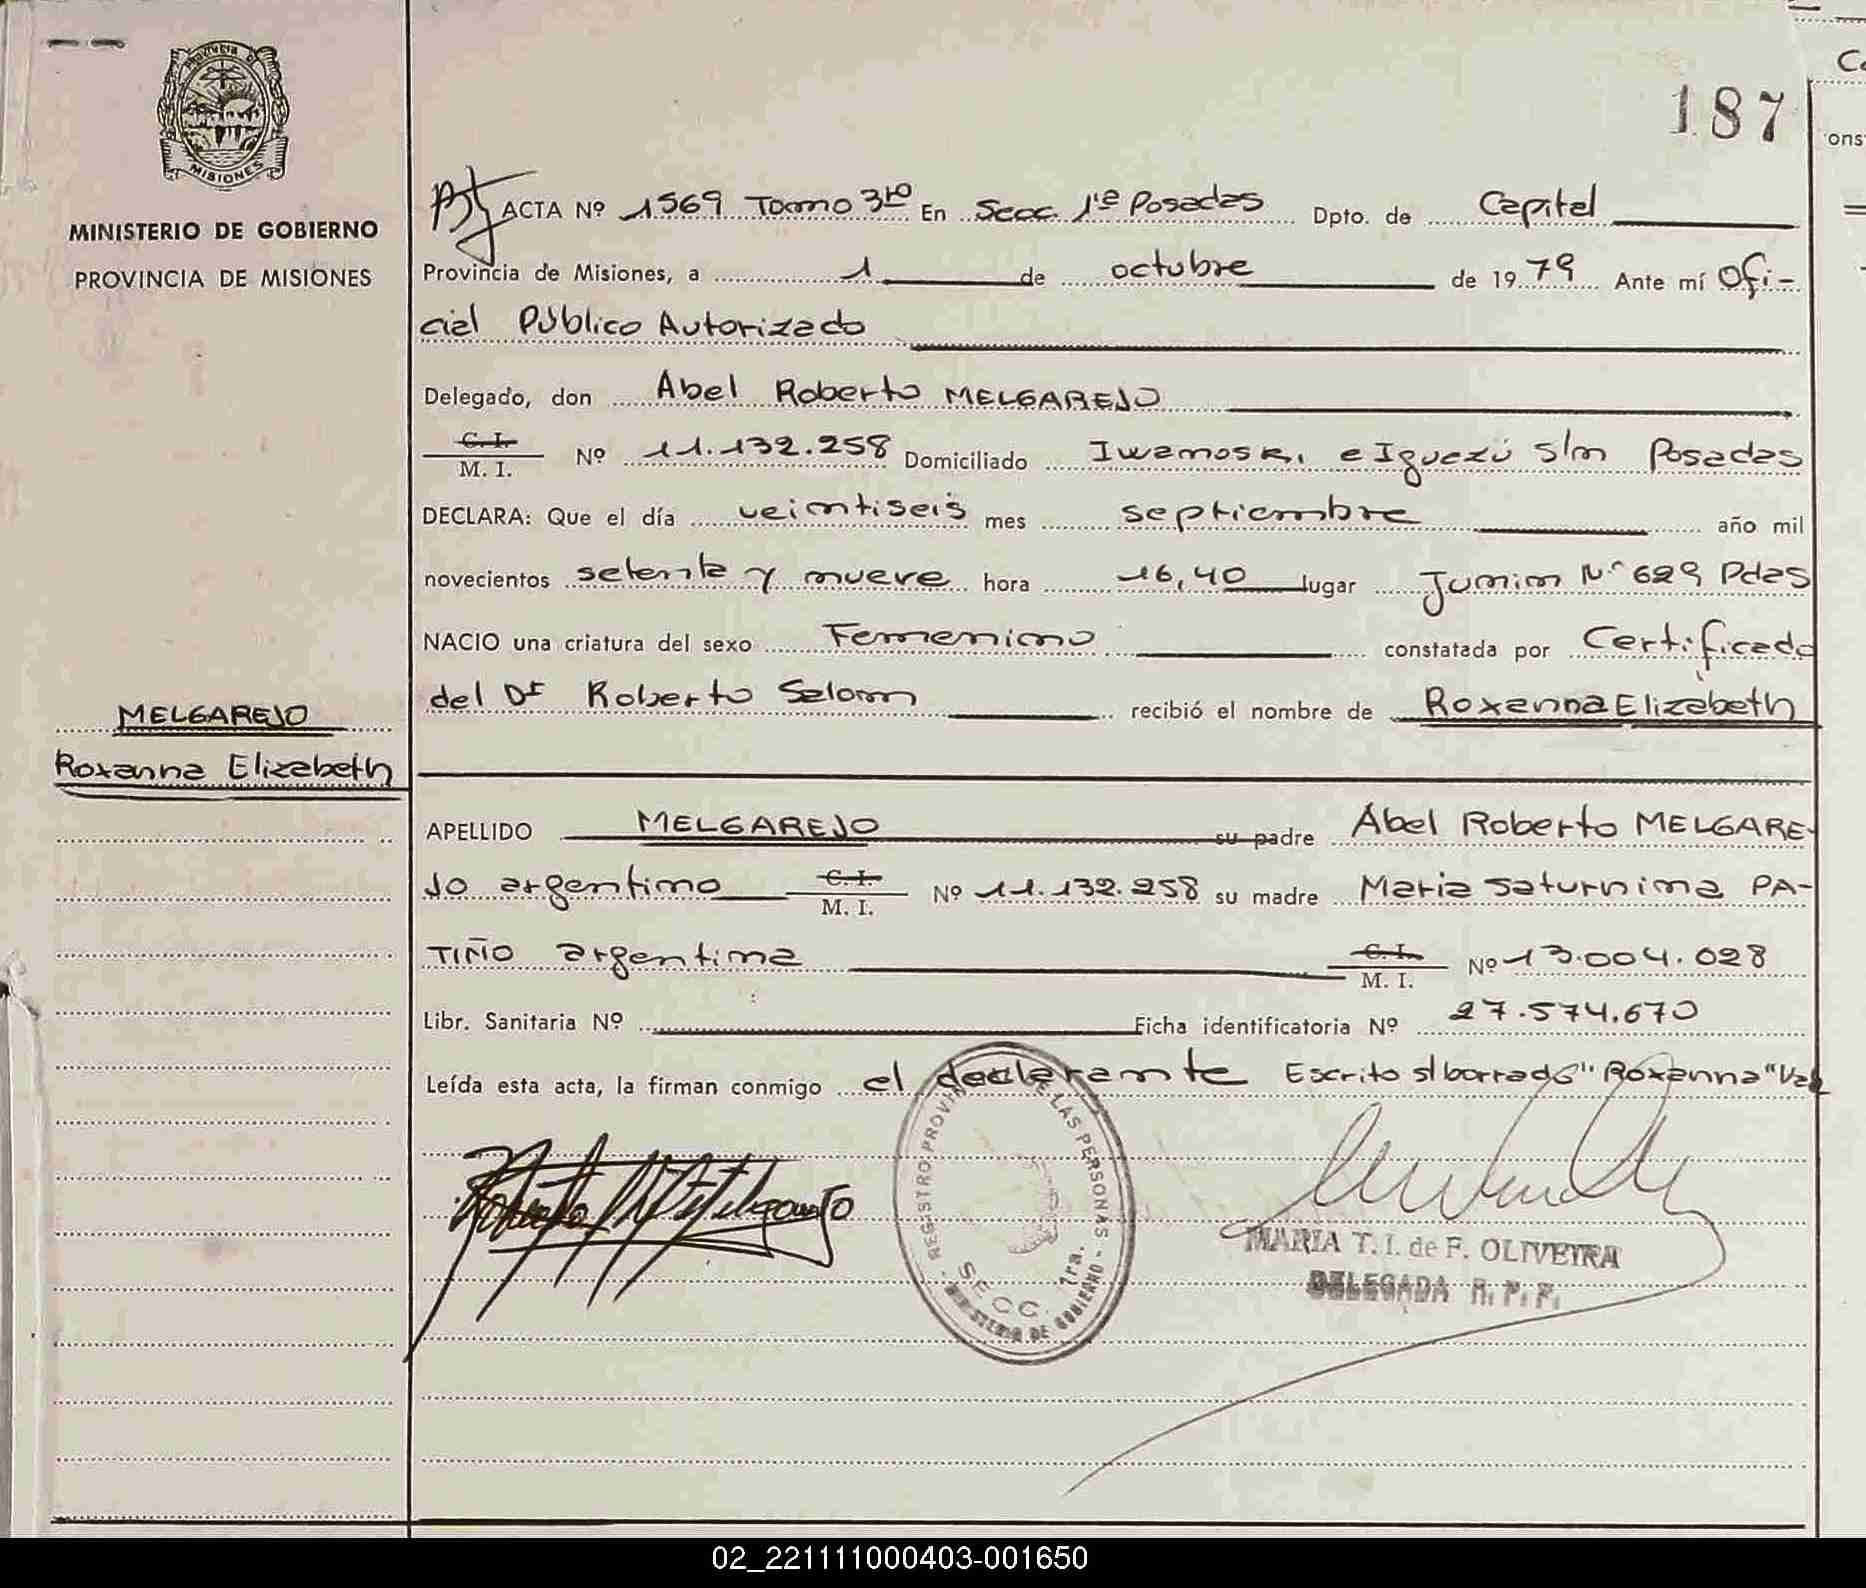 187
MISIONES
MINISTERIO DE GOBIERNO
PROVINCIA DE MISIONES
MELGAREJO
Roxanna Elizabeth
ACTA Nº 1569 Tomo 3ro En Secc. 1ra Posadas Dpto. de Capital
Provincia de Misiones, a 1 de octubre de 1979 Ante mí Ofi-
cial Público Autorizado
Delegado, don Abel Roberto MELGAREJO
C. I.
M. I. Nº 11.132.258 Domiciliado Iwanoski e Iguazú s/n Posadas
DECLARA: Que el día veintiseis mes septiembre año mil
novecientos setenta y nueve hora 16,40 lugar Junin Nº 629 Pdas
NACIO una criatura del sexo Femenino constatada por Certificado
del Dr Roberto Salom recibió el nombre de Roxanna Elizabeth
APELLIDO MELGAREJO su padre Abel Roberto MELGARE-
JO argentino C. I. M. I. Nº 11.132.258 su madre Maria Saturnina PA-
TIÑO argentina C. I. M. I. Nº 13.004.028
Libr. Sanitaria Nº Ficha identificatoria Nº 27.574.670
Leída esta acta, la firman conmigo el declarante Escrito s/borrado "Roxanna" Vale
REGISTRO PROVINCIAL DE LAS PERSONAS - MINISTERIO DE GOBIERNO
SECC. 1ra.
MARIA T. I. de F. OLIVEIRA
DELEGADA R. P. P.
02_221111000403-001650